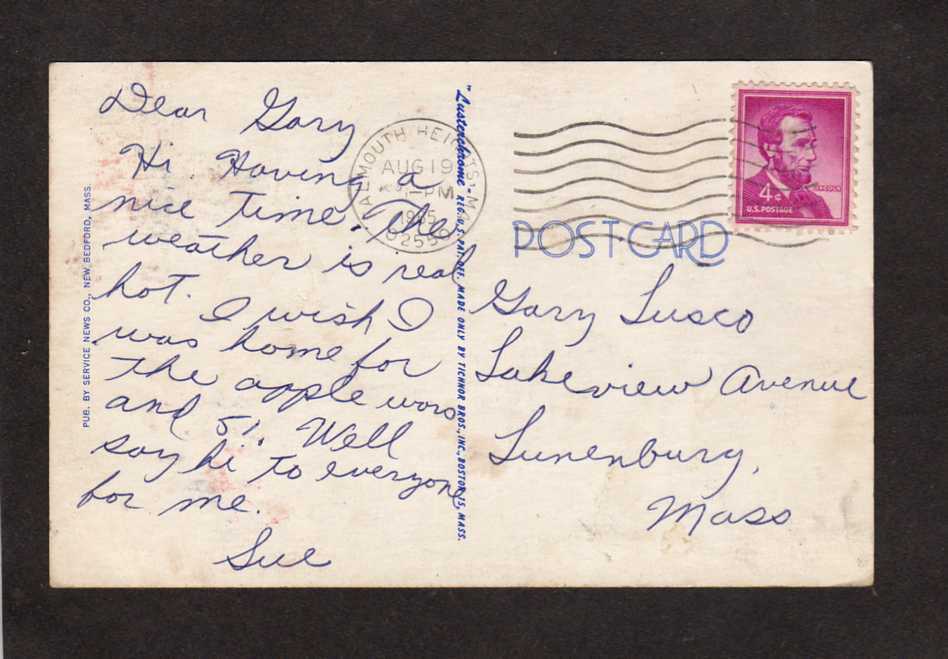 Dear Gary
Hi. Having a
nice time. The
weather is real
hot.
I wish I
was home for
the apple wars
and 51. Well
say hi to everyone
for me.
Sue
PUB. BY SERVICE NEWS CO., NEW BEDFORD, MASS.
"Lusterchrome" REG. U.S. PAT. OFF. MADE ONLY BY TICHNOR BROS., INC., BOSTON 15, MASS.
FALMOUTH HEIGHTS, MA
AUG 19
PM
1965
02556
4¢
LINCOLN
U.S. POSTAGE
POST CARD
Gary Lusco
Lakeview Avenue
Lunenburg,
Mass